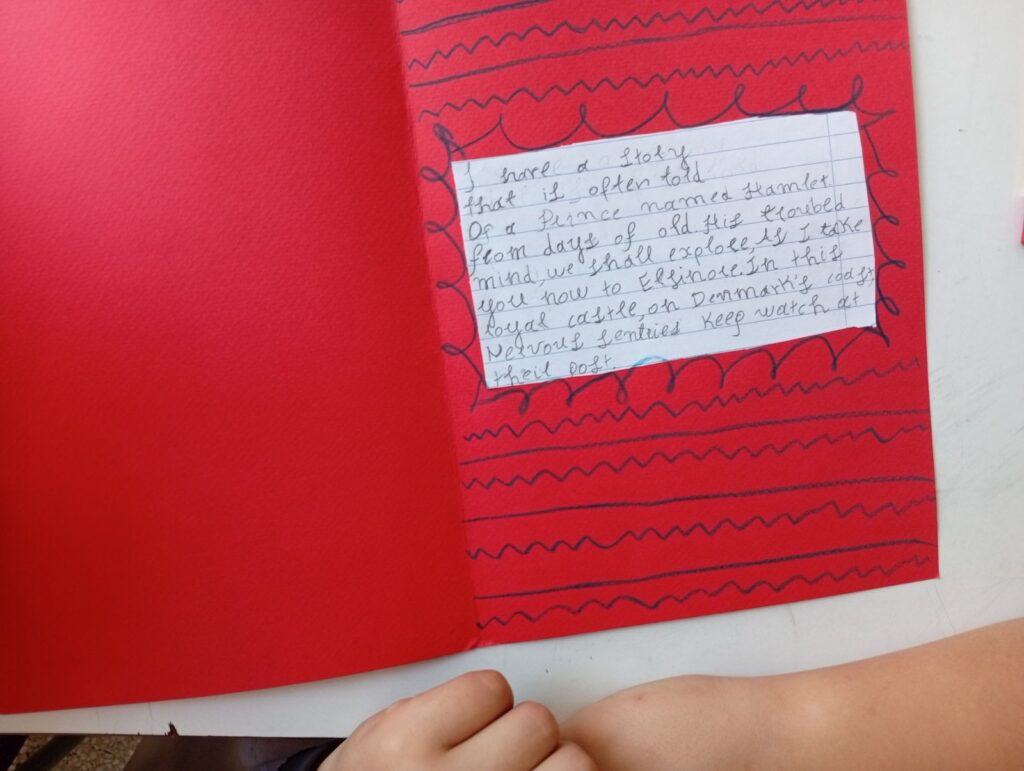 I have a story
that is often told
Of a Prince named Hamlet
from days of old. His troubed
mind, we shall explore, As I take
you now to Elsinore. In this
royal castle, on Denmark's coast,
Nervous sentries keep watch at
their post.